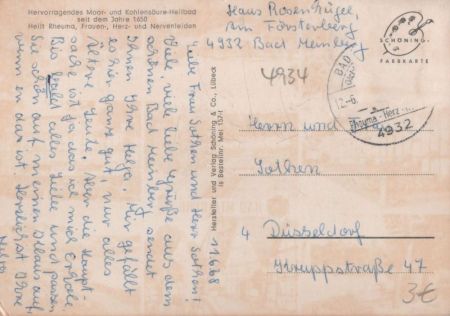 Hervorragendes Moor- und Kohlensäure-Heilbad
seit dem Jahre 1650
Heilt Rheuma, Frauen-, Herz- und Nervenleiden
11.6.68
Liebe Frau Sothen und Herr Sothen!
Viele, viele liebe Grüße aus dem
schönen Bad Meinberg sendet
Ihnen Ihre Helga. Mir gefällt
es hier ganz gut, nur alles
ältere Leute. Aber die Haupt-
sache ist ja, dass ich mich erhole.
Bis alles Liebe und passen
Sie schön auf meinen auf,
wenn er da ist. Herzlichst Ihre
Helga
Hersteller und Verlag Schöning & Co., Lübeck
Bestellnr. Mei 13/1
Hans Rosenhügel,
Am Försterberg
4932 Bad Meinberg
4934
SCHÖNING
FARBKARTE
BAD
12.-6.
Rheuma - Herz
4932
Herrn und
Sothen
4 Düsseldorf
Kruppstraße 47
3€